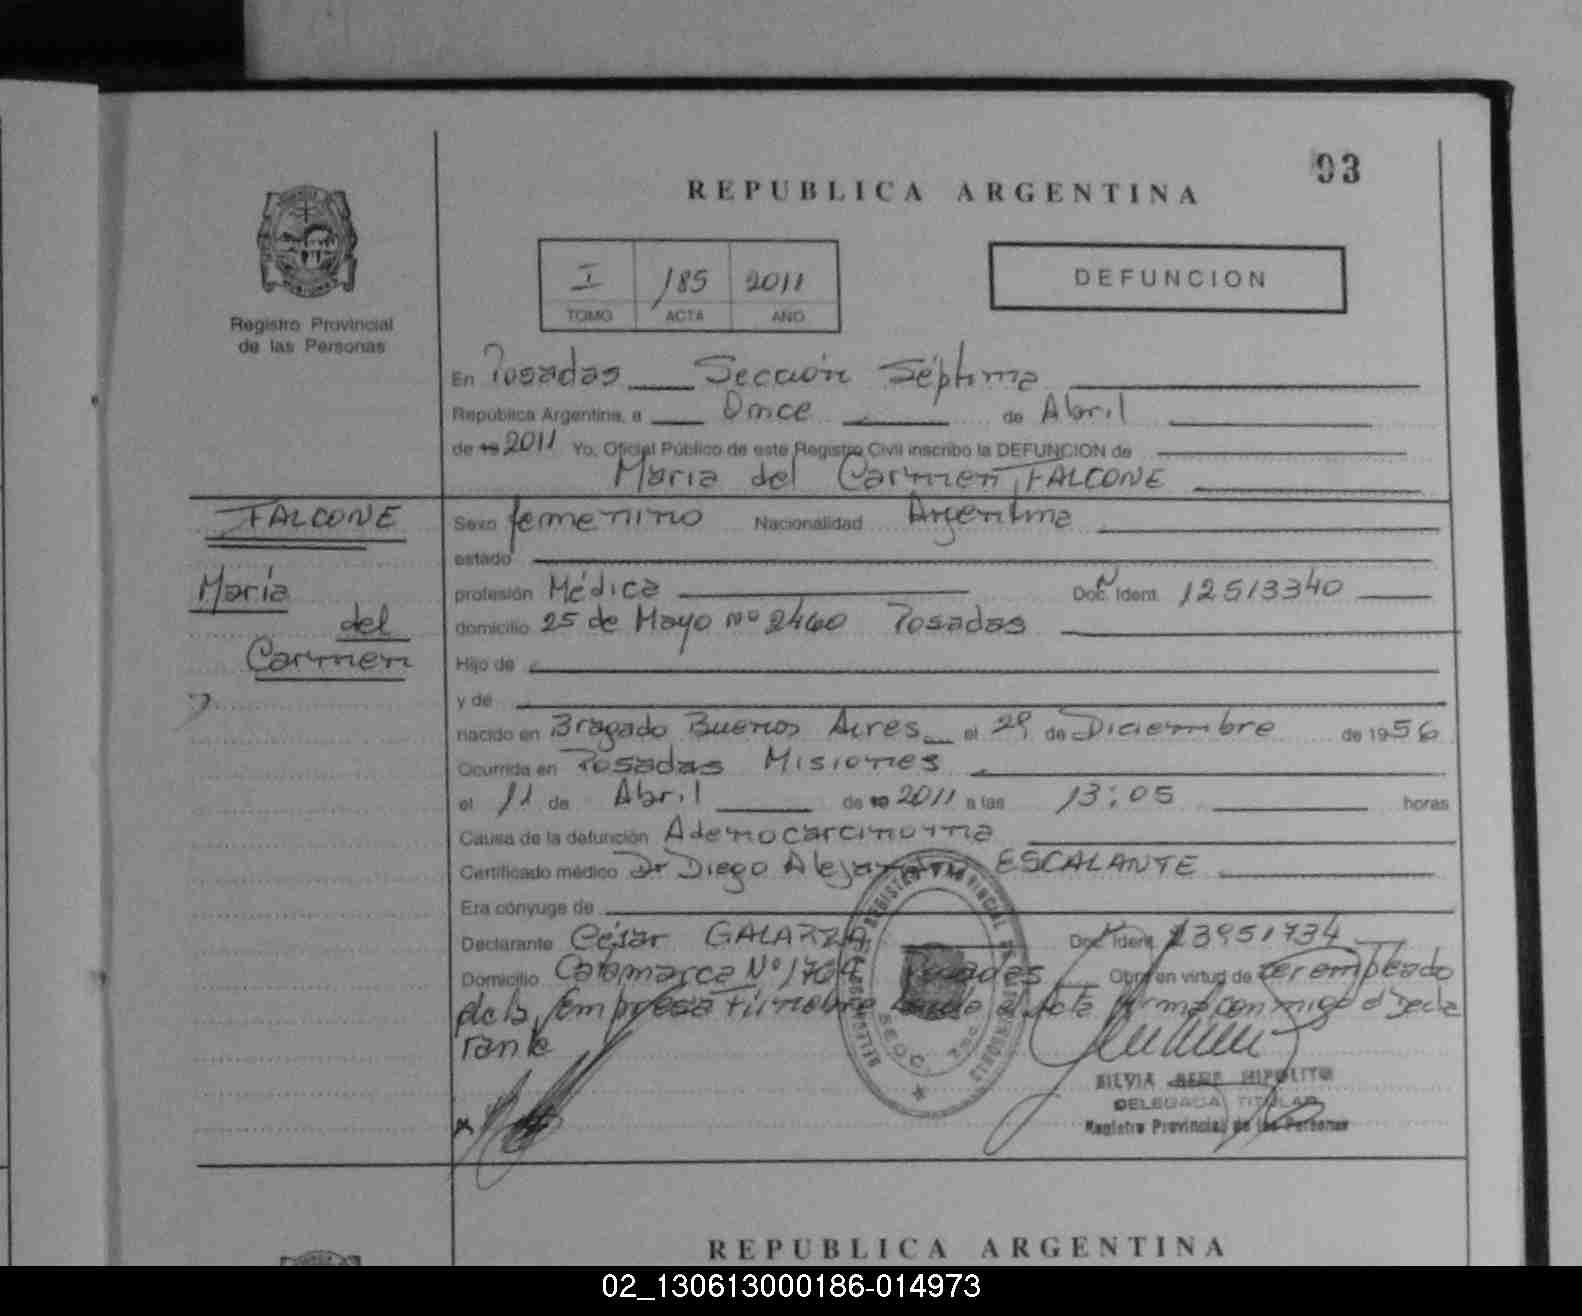 93
REPUBLICA ARGENTINA
Registro Provincial
de las Personas
I 185 2011
TOMO ACTA AÑO
DEFUNCION
En Posadas Sección Séptima
República Argentina, a Once de Abril
de 19 2011 Yo, Oficial Público de este Registro Civil inscribo la DEFUNCION de
María del Carmen FALCONE
FALCONE
María
del
Carmen
Sexo femenino Nacionalidad Argentina
estado
profesión Médica Doc. Ident. 12513340
domicilio 25 de Mayo Nº 2460 Posadas
Hijo de
y de
nacido en Bragado Buenos Aires el 29 de Diciembre de 1956
Ocurrida en Posadas Misiones
el 11 de Abril de 19 2011 a las 13:05 horas
Causa de la defunción Adenocarcinoma
Certificado médico Dr Diego Alejandro ESCALANTE
Era cónyuge de
Declarante César GALARZA Doc. Ident. 13951734
Domicilio Catamarca Nº 1764 Posadas Obra en virtud de ser empleado
de la Empresa fúnebre acta firma conmigo el Decla
rante
SILVIA HIPOLITO
DELEGADA TITULAR
Registro Provincial de las Personas
REPUBLICA ARGENTINA
02_130613000186-014973